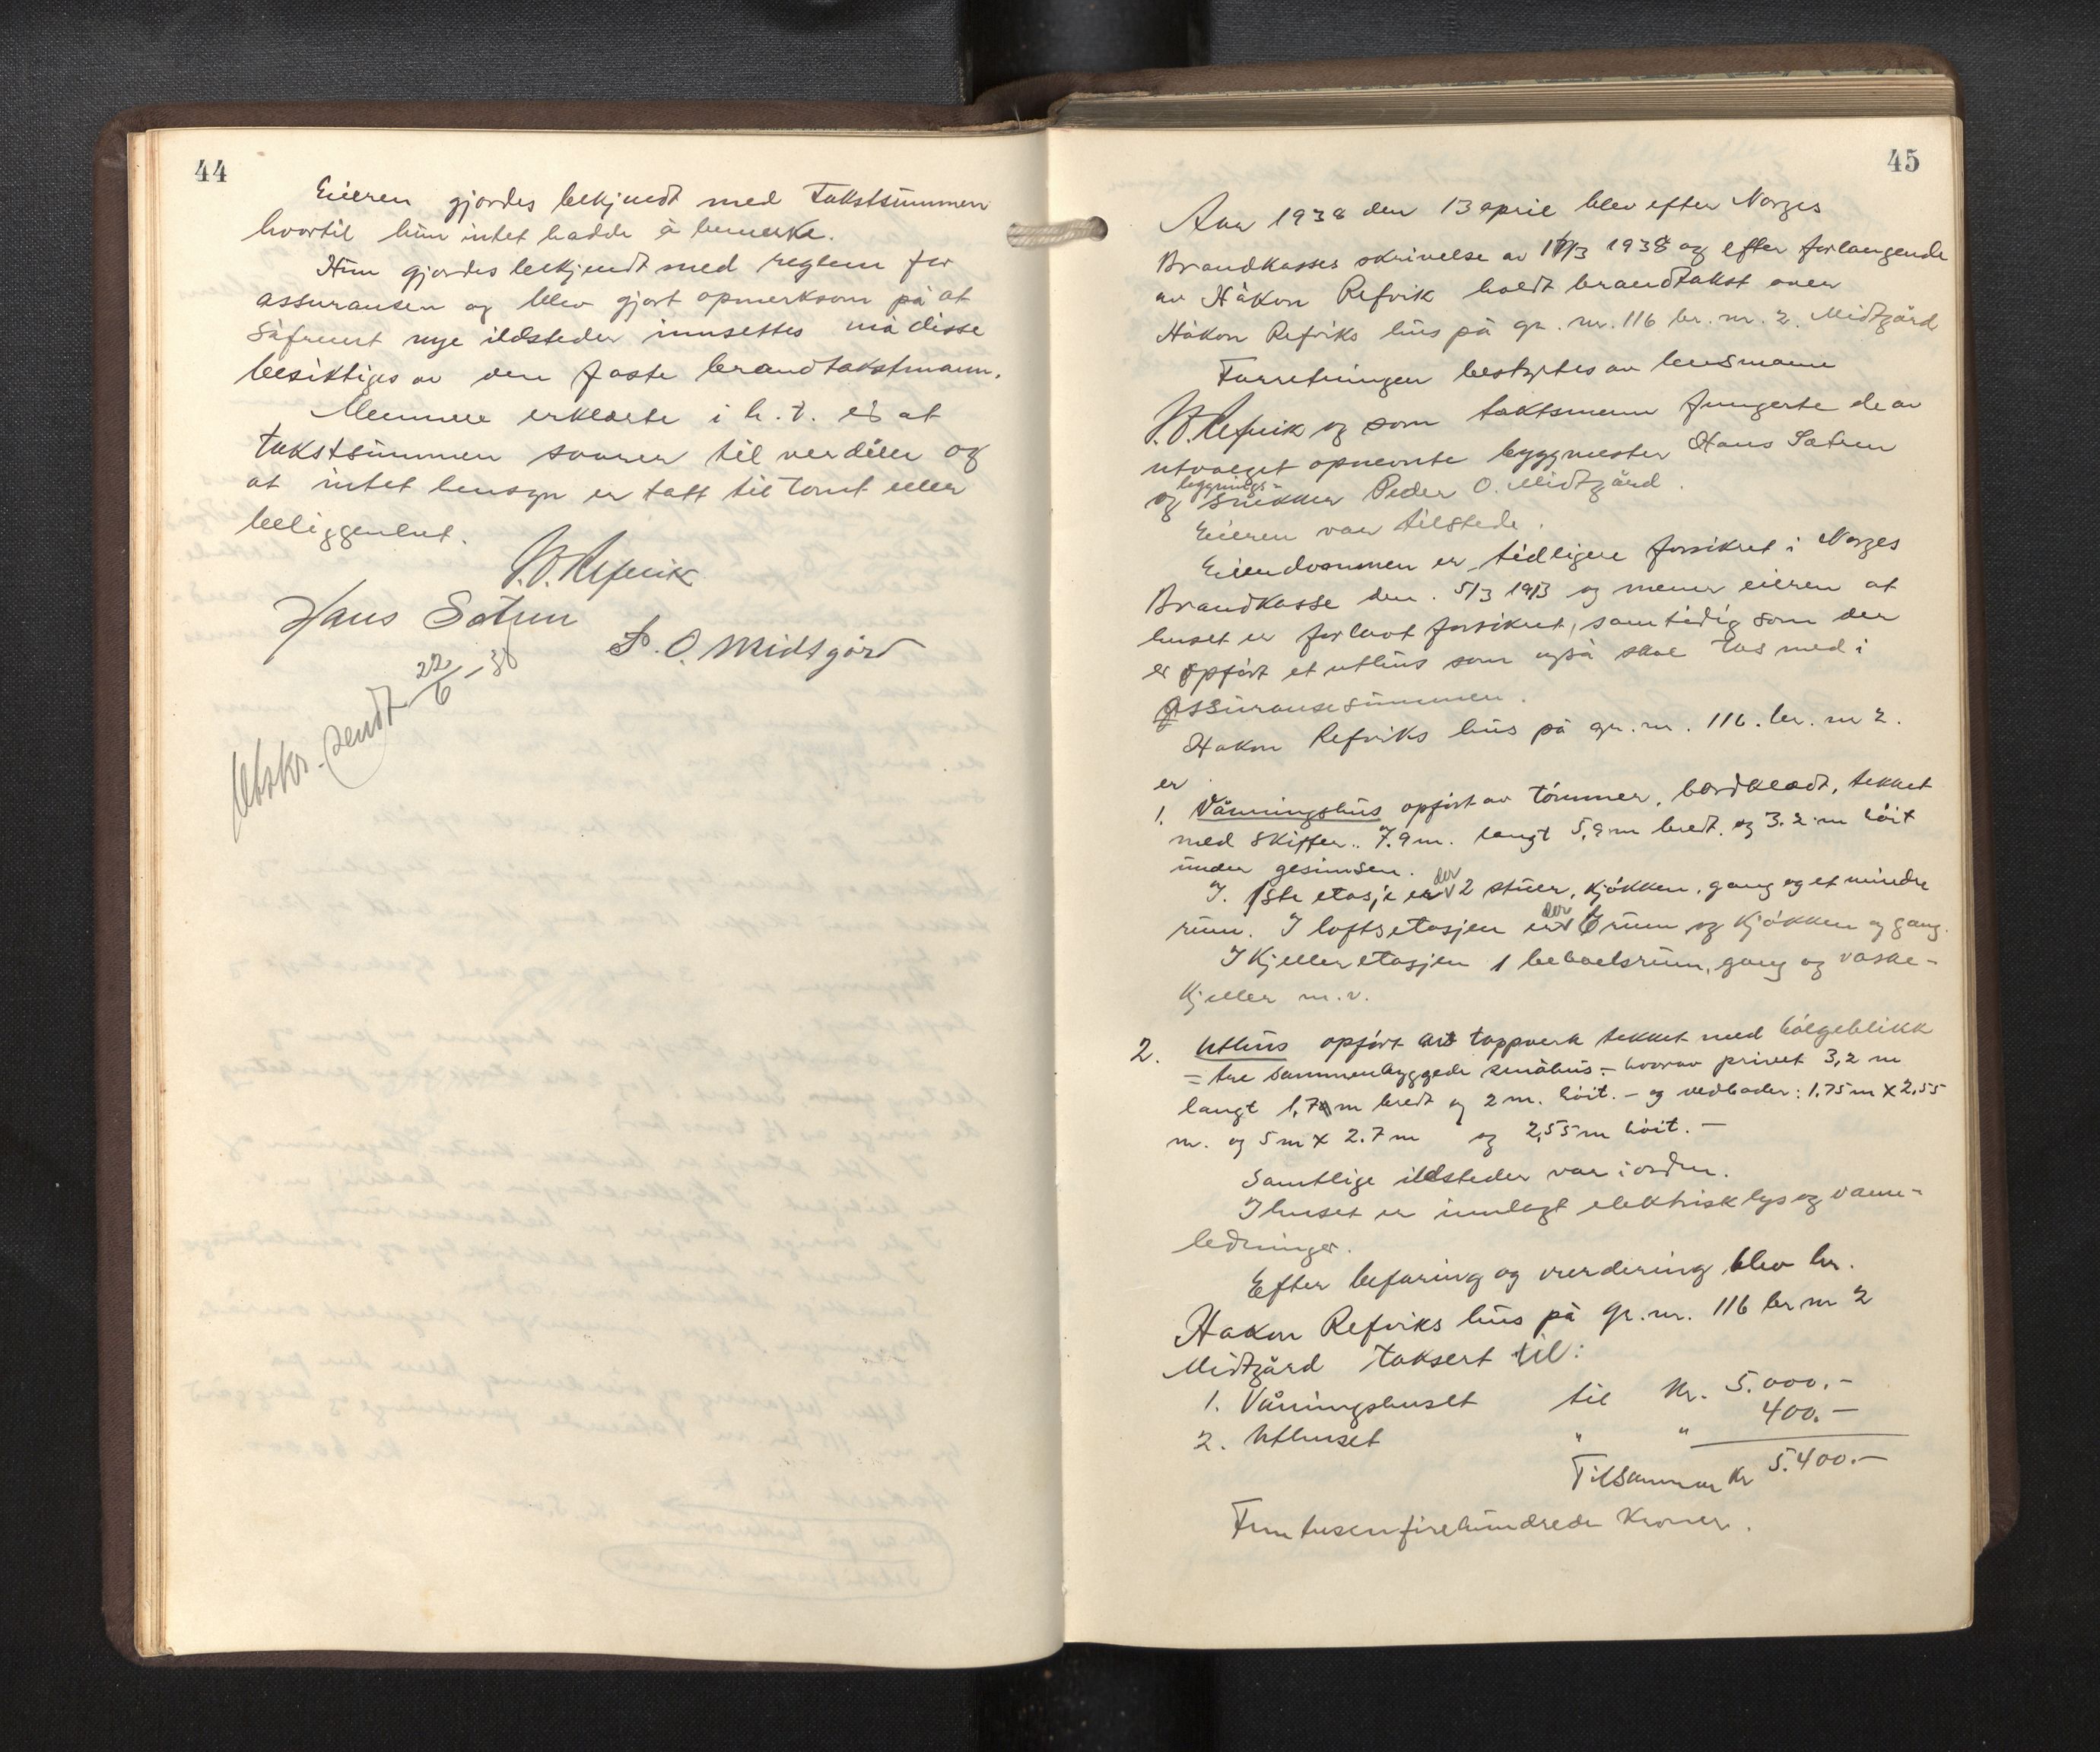 44
Eieren gjordes bekjendt med Takstsummen
hvortil hun intet hadde å bemerke.
Hun gjordes bekjendt med reglene for
assuransen og blev gjort opmerksom på at
såfremt nye ildsteder innsettes må disse
besiktiges av den faste brandtakstmann.
Mennene erklærte i h. t. ed at
takstsummen svarer til verdien og
at intet hensyn er tatt til tomt eller
beliggenhet.
Refvik
Hans Sætren
P. O. Midtgård
Utskr. sendt 22/6 - 38
45
Aar 1938 den 13 april blev efter Norges
Brandkasses skrivelse av 1938 og efter forlangende
av Håkon Refvik holdt brandtakst over
Håkon Refviks hus på gr. nr. 116 br. nr. 2. Midtgård
Forretningen bestyrtes av lensmann
Refvik og som takstmenn fungerte de av
utvalget opnevnte byggmester Hans Sætren
og bygnings-snekker Peder O. Midtgård.
Eieren var tilstede.
Eiendommen er tidligere forsikret i Norges
Brandkasse den. 5/3 1913 og mener eieren at
huset er for lavt forsikret, samtidig som der
er opført et uthus som også skal tas med i
assuransesummen.
Hakon Refviks hus på gr. nr. 116. br. nr 2.
er
1. Våningshus opført av tömmer, bordklædt, tekket
med skiffer.. 7.9 m. langt 5,9 m bredt. og 3.2 m höit
under gesimsen.
I. 1ste etasje er der 2 stuer, kjökken, gang og et mindre
rum. I loftsetasjen er der 6 rum og kjökken og gang.
I Kjelleretasjen 1 beboelsrum, gang og vaske-
kjeller m. v.
2. Uthus opført av toppverk tekket med bölgeblikk
= tre sammenbyggede småhus - hvorav privet 3,2 m
langt 1,70 m bredt og 2 m. höit. - og vedboder: 1.75 m x 2.55
m. og 5 m x 2.7 m og 2,55 m höit. -
Samtlige ildsteder var i orden.
I huset er innlagt elektrisk lys og vann-
ledninger.
Efter befaring og verdering blev hr.
Hakon Refviks hus på gr. nr. 116 br nr 2
Midtgård taksert til:
1. Våningshuset til Kr. 5.000.-
2. Uthuset " " 400.-
Tilsammen Kr 5.400.-
Femtusenfirehundrede Kroner.